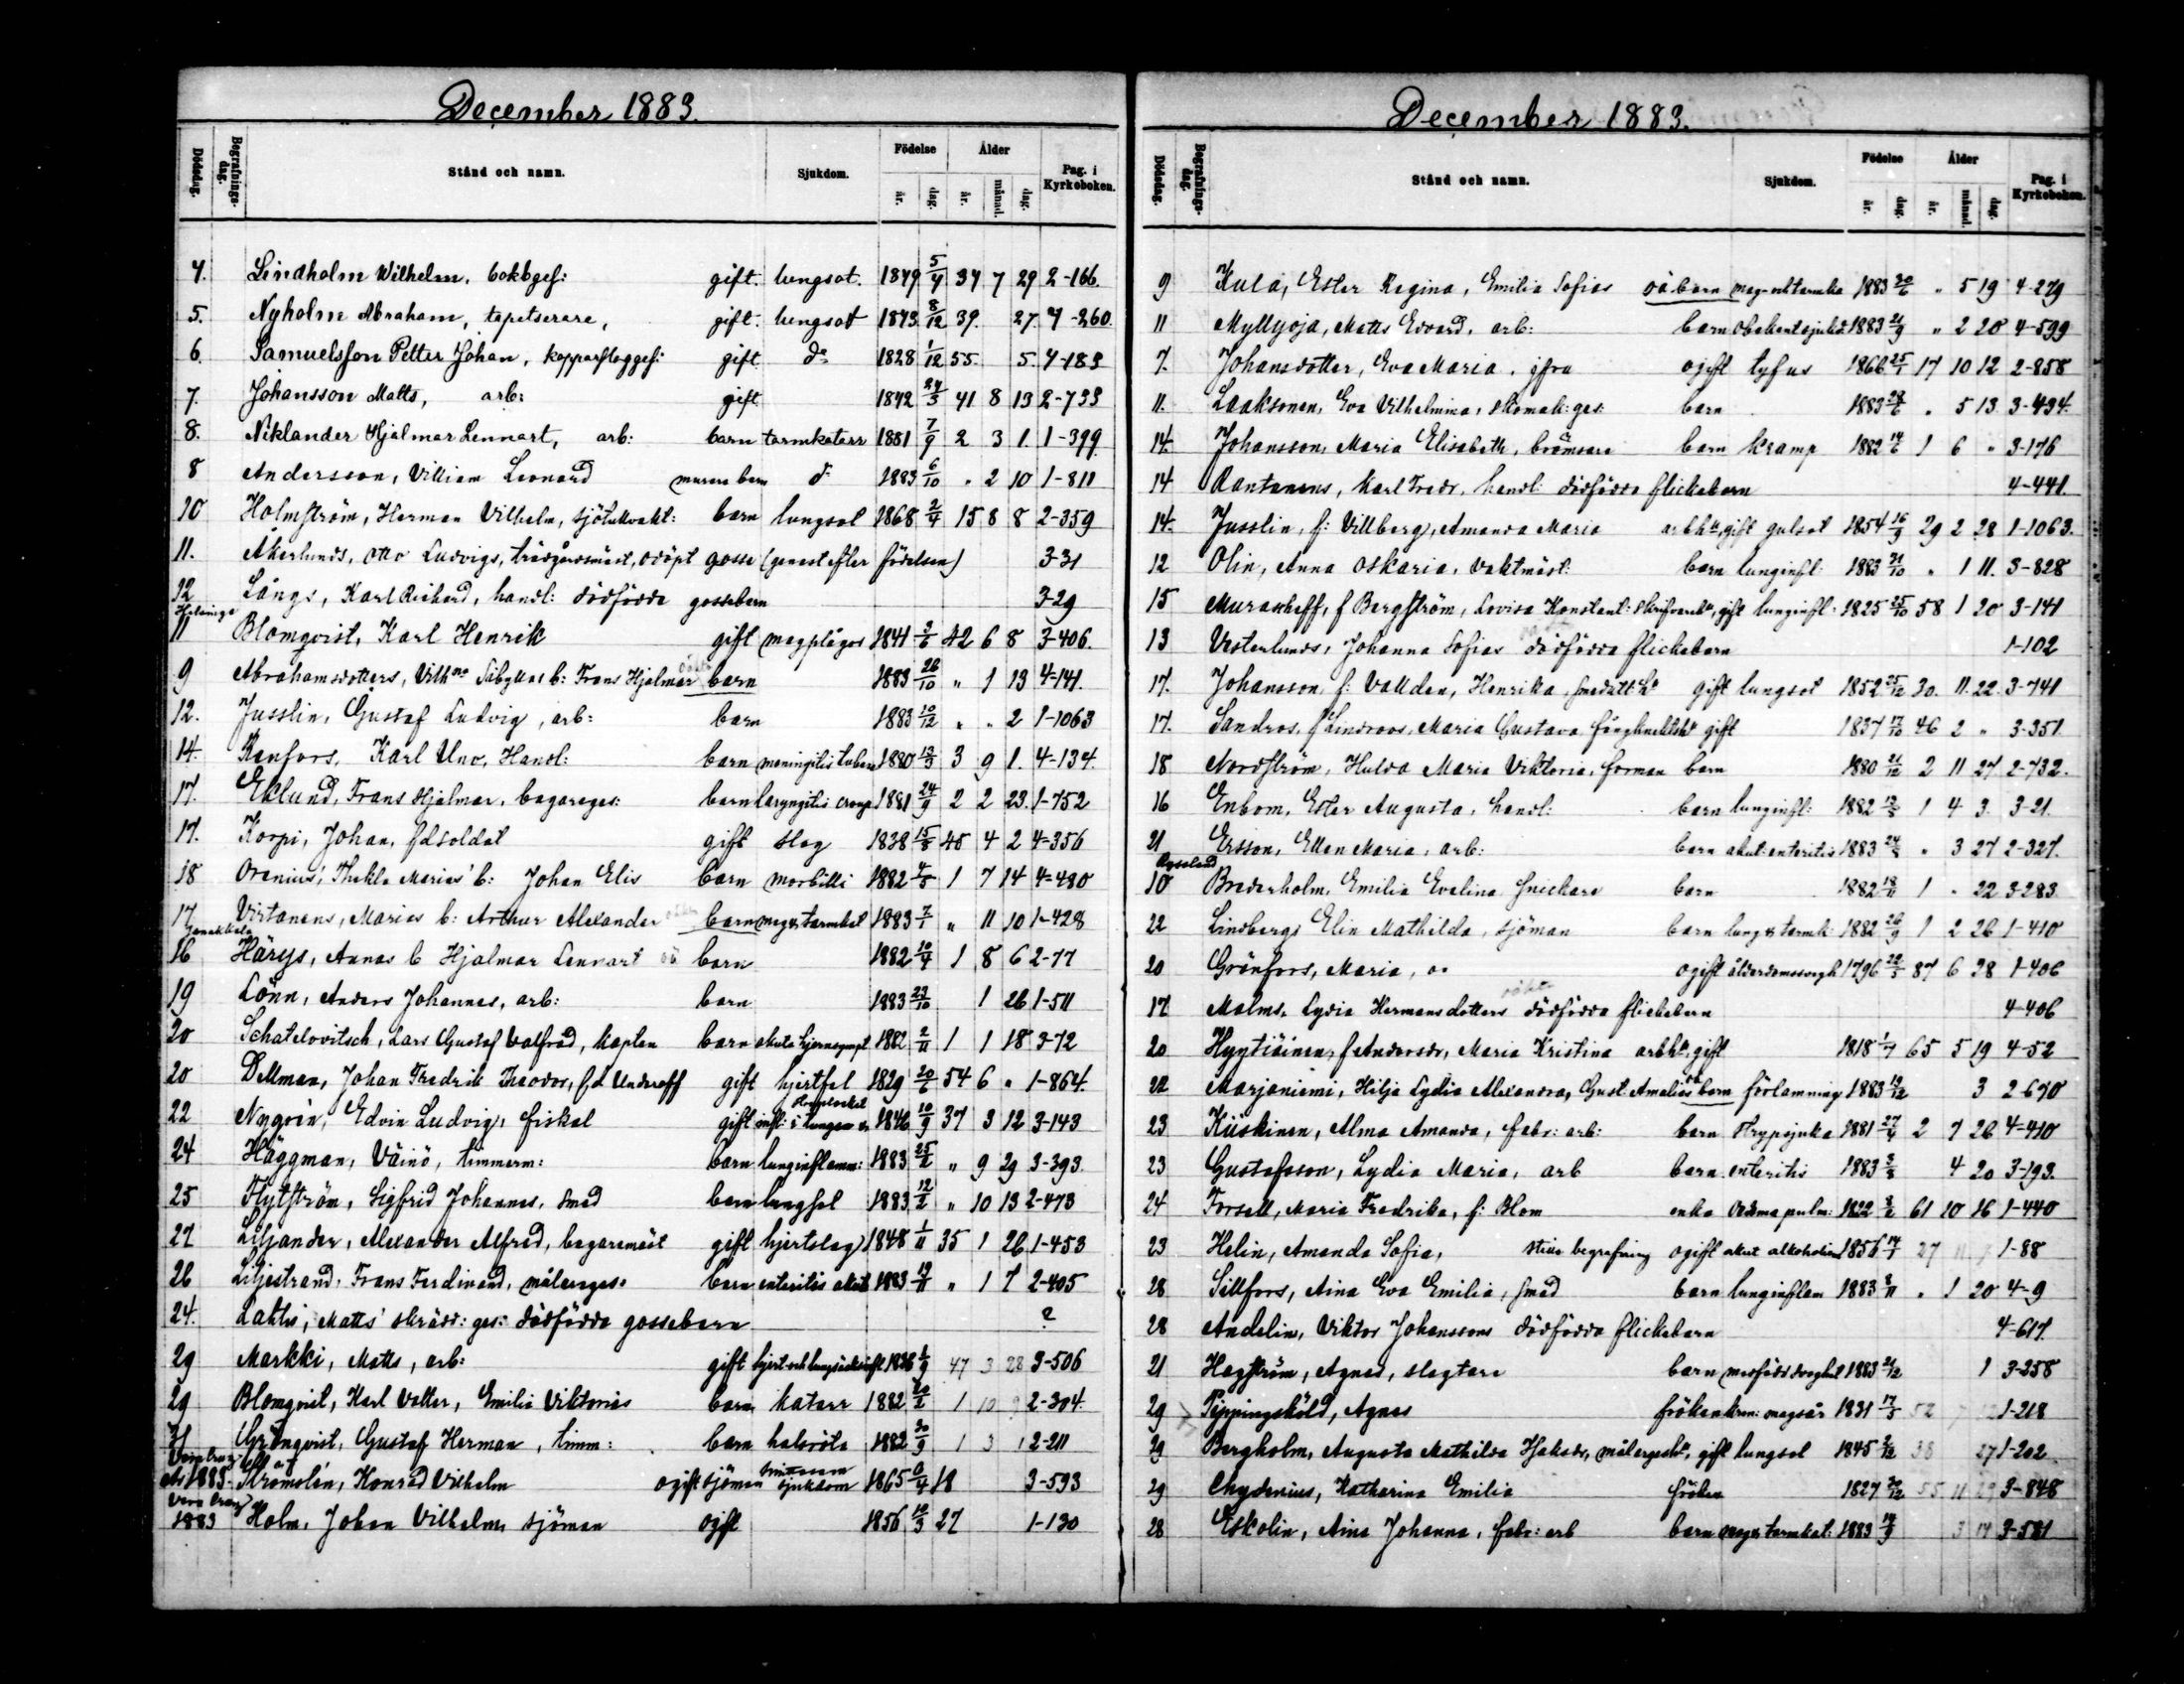 December 1883.
Dödsdag. Begrafnings-dag. Stånd och namn. Sjukdom. Födelse år. dag. Ålder år. månad. dag. Pag. i Kyrkoboken.
4. Lindholm Wilhelm, bokbges: gift. lungsot. 1849 5/4 34 7 29 2-166.
5. Nyholm Abraham, tapetserare, gift. lungsot 1843 8/12 39. 27. 4-260.
6. Samuelsson Petter Johan, kopparslagges: gift do 1828 1/12 55. 5. 4-183
7. Johansson Matts, arb: gift 1842 24/3 41 8 13 2-733
8. Niklander Hjalmar Lennart, arb: barn tarmkatarr 1881 7/9 2 3 1. 1-399.
8 Andersson, Villiam Leonard murare barn do 1883 6/10 " 2 10 1-811
10 Holmström, Herman Vilhelm, sjötullvakt: barn lungsot 1868 2/4 15 8 8 2-359
11. Åkerlunds, Otto Ludvigs, trädgårdsmäst, odöpt gosse (genast efter födelsen) 3-31
12 Långs, Karl Richard, handl: dödfödda gossebarn 3-29
Helsinge
11 Blomqvist, Karl Henrik gift magplågor 1841 3/6 42 6 8 3-406.
9 Abrahamsdotters, Vilhna Sibyllas b: Frans Hjalmar barn 1883 26/10 " 1 13 4-141.
12. Jusslin, Gustaf Ludvig, arb: barn 1883 10/12 " " 2 1-1063
14. Renfors, Karl Uno, Handl: barn meningitis tuberc 1880 13/3 3 9 1. 4-134.
17. Eklund, Frans Hjalmar, bagareges: barn laryngitis croup 1881 24/9 2 2 23. 1-752
17. Korpi, Johan, fd soldat gift slag 1838 15/8 45 4 2 4-356
18 Orenius', Thekla Marias' b: Johan Elis barn morbilli 1882 4/5 1 7 14 4-480
17 Virtanens, Marias b: Arthur Alexander barn mag o tarmkat 1883 7/1 " 11 10 1-428
Janakkala
16 Härys, Annas b Hjalmar Lennart oä barn 1882 10/4 1 8 6 2-77
19 Lönn, Anders Johannes, arb: barn 1883 23/10 1 26 1-511
20 Schatelovitsch, Lars Gustaf Valfrid, kapten barn akuta hjernsympt 1882 2/11 1 1 18 3-72
20 Dellman, Johan Fredrik Theodor, f.d. Underoff gift hjertfel 1829 20/6 54 6 " 1-864.
22 Nygrén, Edvin Ludvig, fiskal gift infl: i lungan 1846 10/9 37 3 12 3-143
24 Häggman, Väinö, timmerm: barn lunginflamm: 1883 25/2 " 9 29 3-393.
25 Flytström, Sigfrid Johannes, smed barn lungsot 1883 12/2 " 10 13 2-473
27 Liljander, Alexander Alfred, bagaremäst gift hjertslag 1848 1/11 35 1 26 1-453
26 Liljestrand, Frans Ferdinand, målareges: barn enteritis akut 1883 19/11 " 1 7 2-405
24. Lahtis', Matts' skrädd: ges: dödfödda gossebarn ?
29 Markki, Matts, arb: gift hjert och lungsäcksinfl 1836 1/9 47 3 28 3-506
29 Blomqvist, Karl Valter, Emilia Viktorias barn katarr 1882 20/2 1 10 9 2-304.
31 Grönqvist, Gustaf Herman, timm: barn halsröta 1882 30/9 1 3 1 2-211
Vera Cruz
okt 1883. Strömslén, Konrad Vilhelm ogift sjöman smittosam sjukdom 1865 6/4 18 3-593
Vera Cruz
1883 Holm, Johan Vilhelm, sjöman ogift 1856 10/3 27 1-130
December 1883.
Dödsdag. Begrafnings-dag. Stånd och namn. Sjukdom. Födelse år. dag. Ålder år. månad. dag. Pag. i Kyrkoboken.
9 Kula, Ester Regina, Emilia Sofias oä barn mag- och tarmka 1883 20/6 " 5 19 4-279
11 Myllyoja, Matts Edvard, arb: barn obekant sjukd: 1883 21/9 " 2 20 4-599
7. Johansdotter, Eva Maria, jfru ogift tyfus 1866 25/1 17 10 12 2-858
11. Laaksonen, Eva Vilhelmina, skomak: ges: barn 1883 28/6 " 5 13. 3-434.
14. Johansson, Maria Elisabeth, brömsare barn kramp 1882 14/6 1 6 " 3-176
14 Rantanens, Karl Fredr, handl: dödfödda flickebarn 4-441.
14. Jusslin, f: Villberg, Amanda Maria arbhu, gift gulsot 1854 16/9 29 2 28 1-1063.
12 Olin, Anna Oskaria, vaktmäst: barn lunginfl: 1883 31/10 " 1 11. 3-828
15 Murascheff, f Bergström, Lovisa Konstant: skrifvarehu, gift lunginfl: 1825 25/10 58 1 20 3-141
13 Vesterlunds, Johanna Sofias dödfödda flickebarn 1-102
17. Johansson f: Vallden, Henrika, smedsttshu gift lungsot 1852 25/12 30. 11. 22. 3-741
17. Sandros, f Lindroos, Maria Gustava, fångknektshu gift 1837 17/10 46 2 " 3-351.
18 Nordström, Hulda Maria Viktoria, forman barn 1880 21/12 2 11 27 2-732.
16 Enbom, Ester Augusta, handl: barn lunginfl: 1882 13/8 1 4 3. 3-21.
21 Ersson, Ellen Maria, arb: barn akut: enteritis 1883 24/8 " 3 27 2-327.
Ryssland
10 Brederholm, Emilia Evelina snickare barn 1882 18/11 1 " 22 3-283
22 Lindbergs Elin Mathilda, sjöman barn lung o tarmk: 1882 26/9 1 2 26 1-410
20 Grönfors, Maria, ogift ålderdomssvagh 1796 22/5 87 6 28 1-406
17 Malms, Lydia Hermansdotters dödfödda flickebarn 4-406
20 Hyytiäinen, f Andersdr, Maria Kristina arbhu, gift 1818 1/7 65 5 19 4-52
22 Marjaniemi, Hilja Lydia Alexandra, Gust: Amalias barn förlamning 1883 19/12 3 2-670
23 Kiiskinen, Alma Amanda, fabr: arb: barn strypsjuka 1881 27/4 2 7 26 4-410
23 Gustafsson, Lydia Maria, arb barn enteritis 1883 3/8 4 20 3-193.
24 Forsell, Maria Fredrika, f: Blom enka Oedema pulm: 1822 8/2 61 10 16 1-440
23 Helin, Amanda Sofia, stilla begrafning ogift akut alkoholism 1856 14/1 27 1-88
28 Sillfors, Aina Eva Emilia, smed barn lunginflam 1883 8/11 " 1 20 4-9
28 Andelins, Viktor Johanssons dödfödda flickebarn 4-617.
21 Hagström, Agnes, slagtare barn medfödd svaghet 1883 21/12 1 3-258
29 Pippingsköld, Agnes fröken kron: magsår 1831 17/5 52 7 12 1-218
29 Bergholm, Augusta Mathilda Isaksdr, målareges hu, gift lungsot 1845 2/12 38 27 1-202.
29 Chydenius, Katharina Emilia fröken 1827 30/12 55 11 29 3-848
28 Eskolin, Aina Johanna, fabr: arb barn mag o tarmkat: 1883 14/9 3 14 3-581